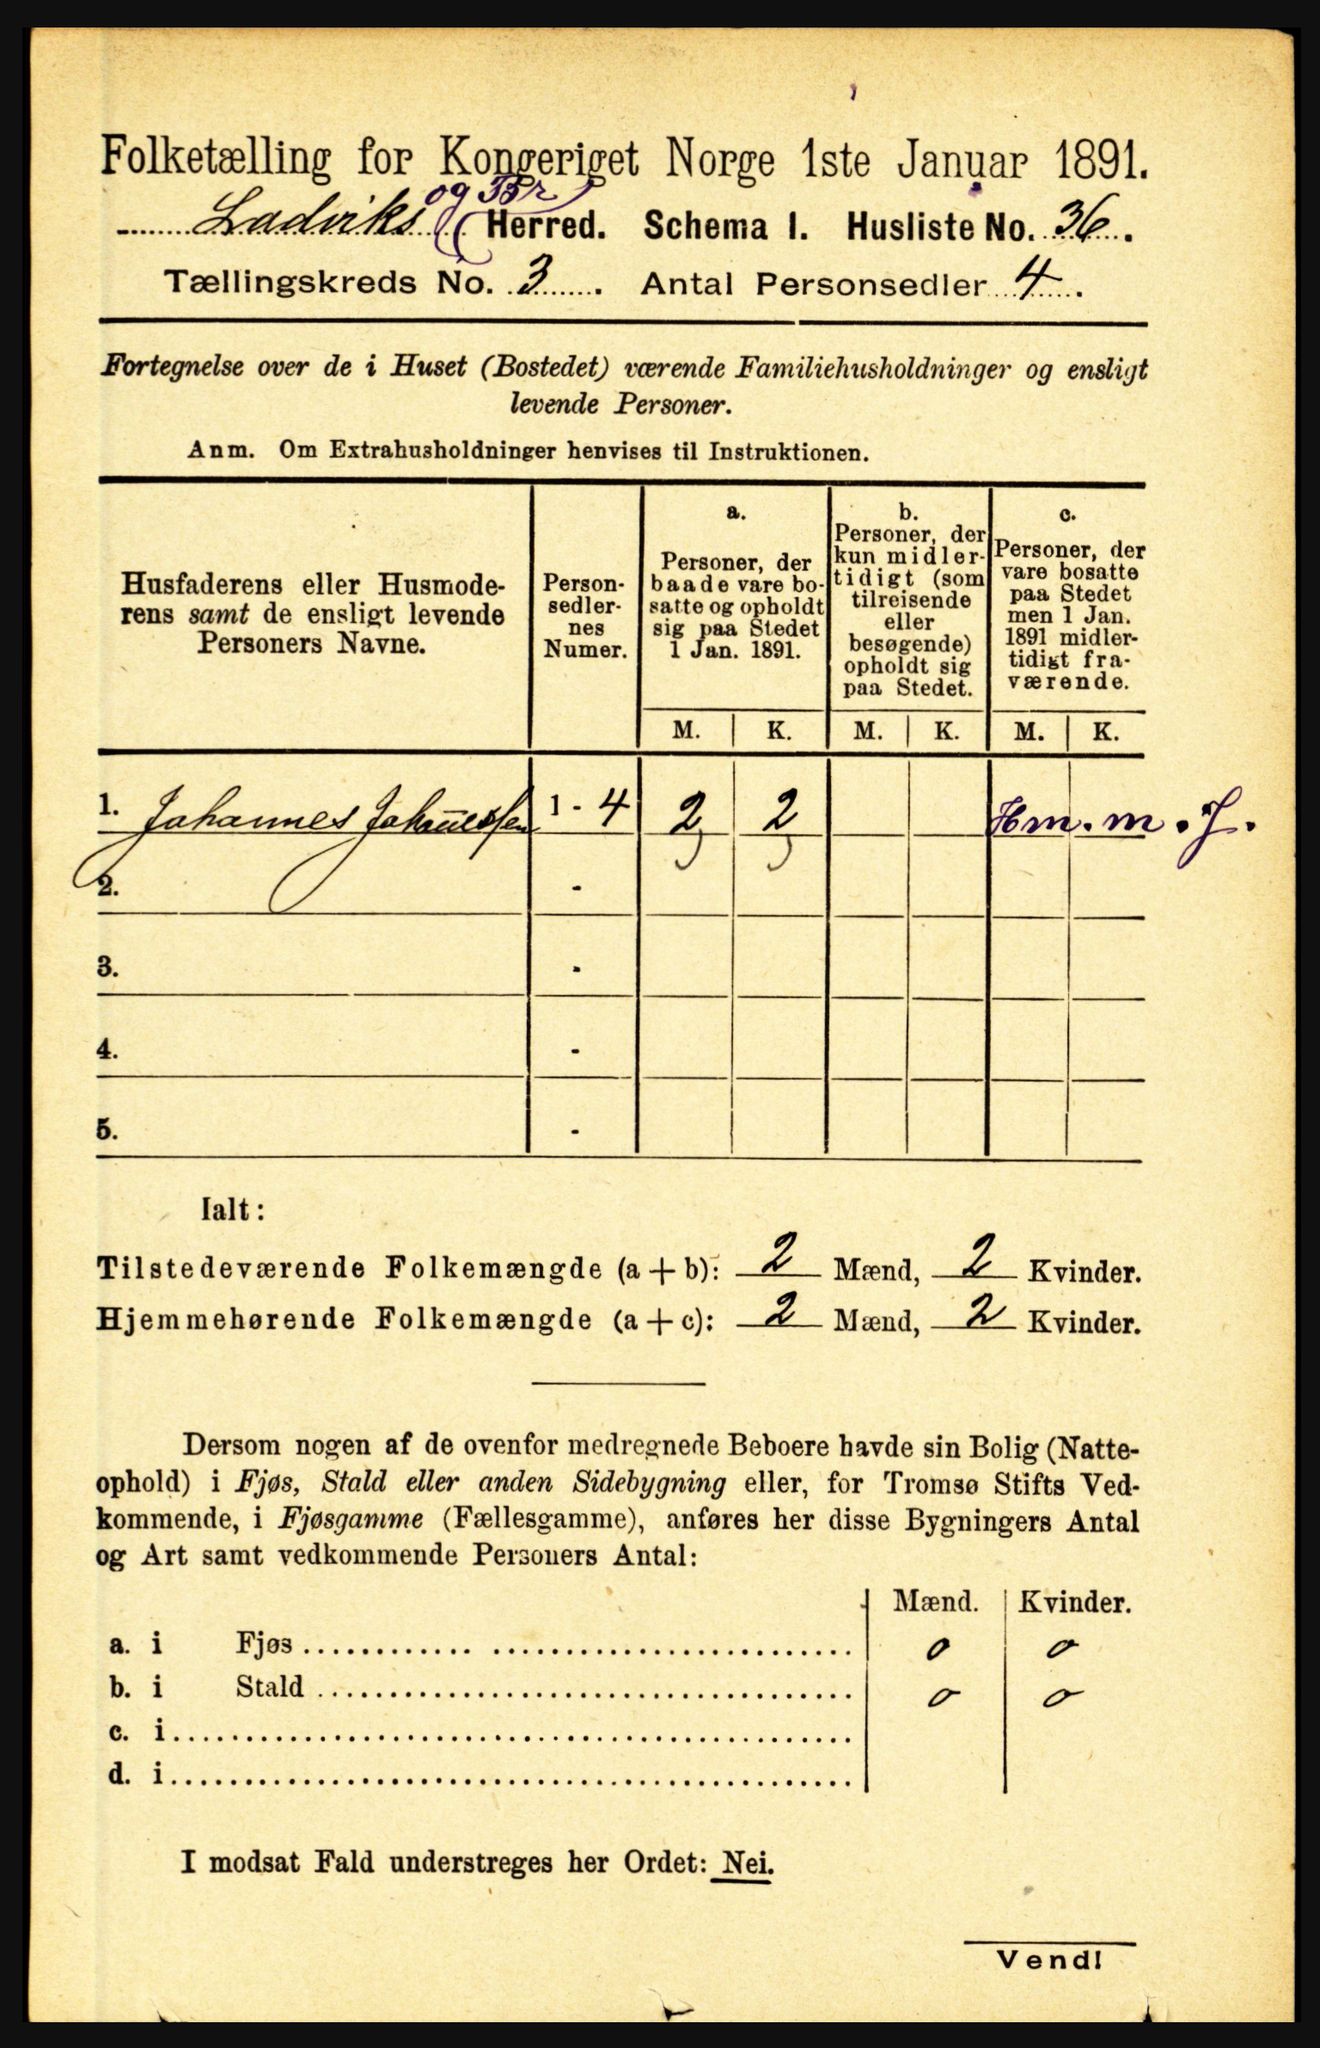 Folketælling for Kongeriget Norge 1ste Januar 1891.
og Br
Ladviks Herred. Schema I. Husliste No. 36.
Tællingskreds No. 3. Antal Personsedler 4.
Fortegnelse over de i Huset (Bostedet) værende Familiehusholdninger og ensligt
levende Personer.
Anm. Om Extrahusholdninger henvises til Instruktionen.
Husfaderens eller Husmode-
rens samt de ensligt levende
Personers Navne.
Person-
sedler-
nes
Numer.
a.
Personer, der
baade vare bo-
satte og opholdt
sig paa Stedet
1 Jan. 1891.
b.
Personer, der
kun midler-
tidigt (som
tilreisende
eller
besøgende)
opholdt sig
paa Stedet.
c.
Personer, der
vare bosatte
paa Stedet
men 1 Jan.
1891 midler-
tidigt fra-
værende.
M. K. M. K. M. K.
1. Johannes Johannessen 1 - 4 2 2 Hm. m. J.
2. -
3. -
4. -
5. -
Ialt:
Tilstedeværende Folkemængde (a + b): 2 Mænd, 2 Kvinder.
Hjemmehørende Folkemængde (a + c): 2 Mænd, 2 Kvinder.
Dersom nogen af de ovenfor medregnede Beboere havde sin Bolig (Natte-
ophold) i Fjøs, Stald eller anden Sidebygning eller, for Tromsø Stifts Ved-
kommende, i Fjøsgamme (Fællesgamme), anføres her disse Bygningers Antal
og Art samt vedkommende Personers Antal:
Mænd. Kvinder.
a. i Fjøs 0 0
b. i Stald 0 0
c. i
d. i
I modsat Fald understreges her Ordet: Nei.
Vend!